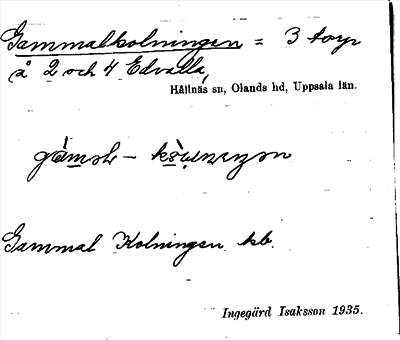 Gammalkolningen = 3 torp
å 2 och 4 Edvalla,
Hållnäs sn, Olands hd, Uppsala län.
Gammal Kolningen kb.
Ingegärd Isaksson 1935.